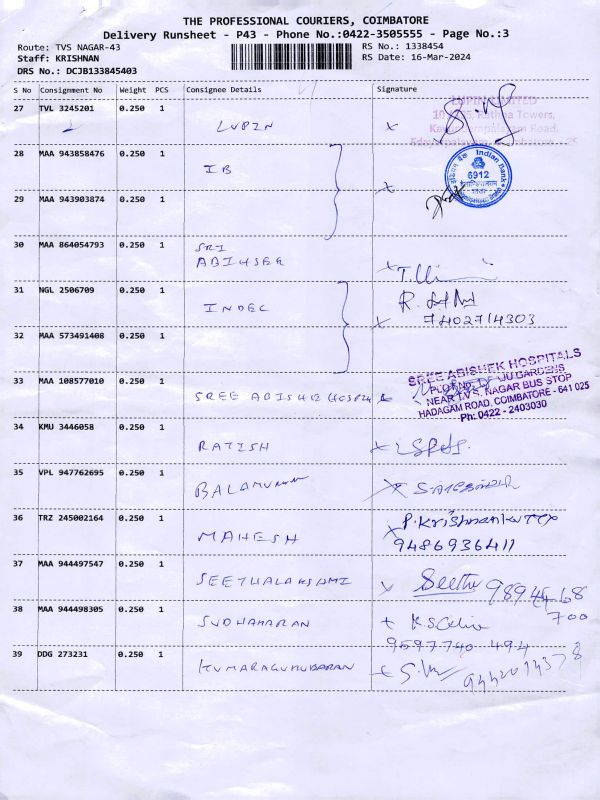 THE PROFESSIONAL COURIERS, COIMBATORE
Delivery Runsheet - P43 - Phone No.:0422-3505555 - Page No.:3
Route: TVS NAGAR-43
RS No.: 1338454
Staff: KRISHNAN
RS Date: 16-Mar-2024
DRS No.: DCJB133845403
S No Consignment No Weight PCS Consignee Details Signature
27 TVL 3245201 0.250 1 LUPIN
LUPIN LIMITED
Towers,
Road,
28 MAA 943858476 0.250 1 IB
Indian Bank
6912
29 MAA 943903874 0.250 1
30 MAA 864054793 0.250 1 SRI
ABIHSEK
31 NGL 2506709 0.250 1 INDEC
7402714303
32 MAA 573491408 0.250 1
33 MAA 108577010 0.250 1 SREE ABISHEK HOSPITAL
SREE ABISHEK HOSPITALS
PLOT NO. RAJU GARDENS
NEAR T.V.S. NAGAR BUS STOP
HADAGAM ROAD, COIMBATORE - 641 025
Ph: 0422 - 2403030
34 KMU 3446058 0.250 1 RATISH
35 VPL 947762695 0.250 1 BALAMURUGAN
36 TRZ 245002164 0.250 1 MAHESH
P. Krishnankutty
9486936411
37 MAA 944497547 0.250 1 SEETHALAKSHMI
Seetha
38 MAA 944498305 0.250 1 SUDHAHARAN
700
9597740 494
39 DDG 273231 0.250 1 KUMARAGURUBARAN